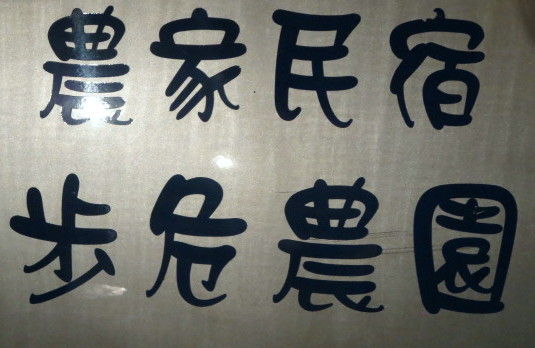 農家民宿
歩危農園